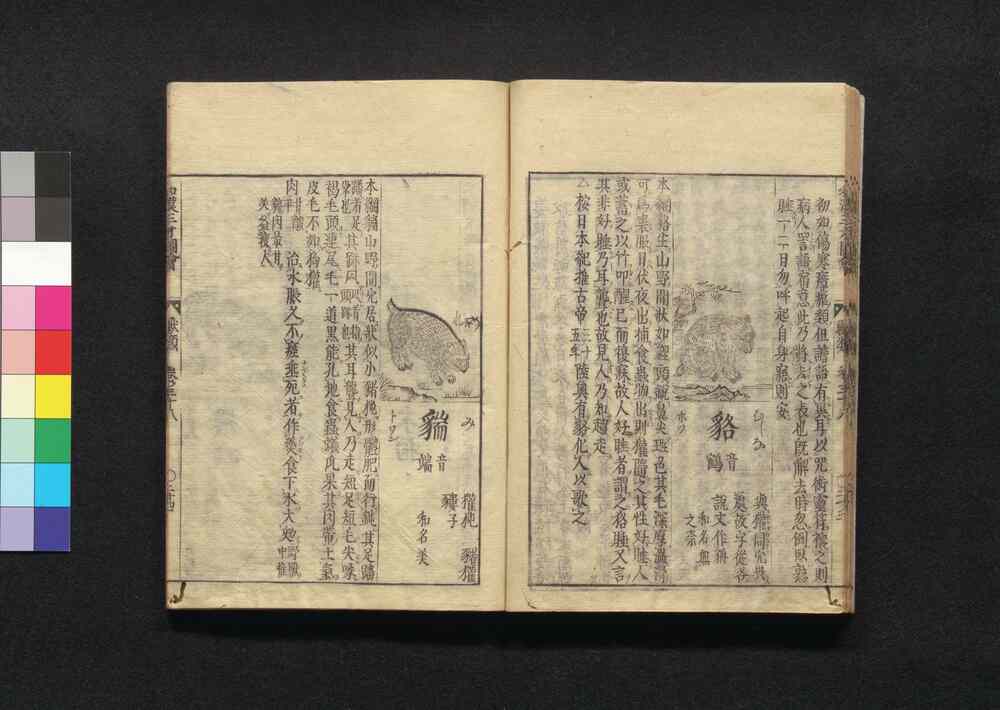 初如傷寒瘧痢類但譫語有異耳以咒術靈符禳之則
病人詈語宿意此乃將去之表也既解去時忽倒臥熟
睡一二日勿呼起自身寤則安
貉
音鶴
むじな
ホツ
與獾同穴異
處故字從各
說文作䝙
和名無
之奈
本綱貉生山野間狀如貍頭銳鼻尖斑色其毛深厚溫滑
可爲裘服日伏夜出捕食蟲物出則獾隨之其性好睡人
或蓄之以竹叩醒已而復寐故人好睡者謂之貉睡又言
其非好睡乃耳聾也故見人乃知趨走
△按日本紀推古帝三十五年陸奧有貉化人以歌之
貒
音端
み
トワン
獾㹠 豬獾
獾子
和名美
本綱貒山野間穴居狀似小豬㹠形體肥而行鈍其足蹯
其耳聾見人乃走短足短毛尖喙
褐毛頭連尾毛一道黑能孔地食蟲蟻瓜果其肉帶土氣
皮毛不如狗獾
肉
甘酸平
治水脹久不瘥垂死者作羹食下水大效
野獸中惟
貒肉最甘
美益瘦人
和漢三才圖會
獸類